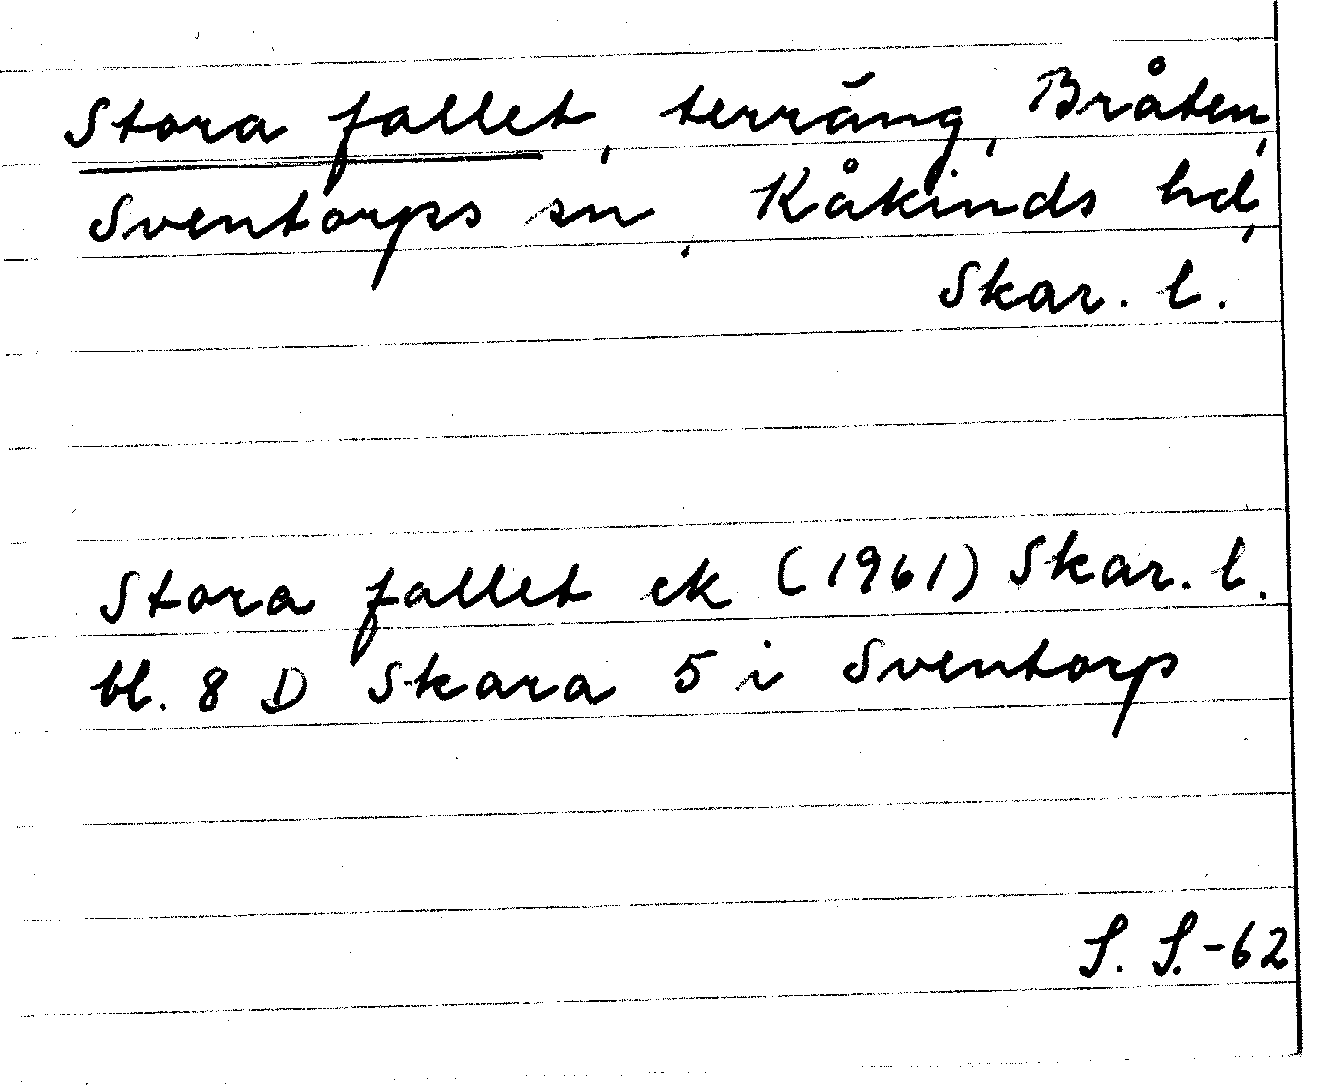 Stora fallet, terräng, Bråten,
Sventorps sn, Kåkinds hd,
Skar. l.
Stora fallet ek (1961) Skar. l.
bl. 8 D Skara 5 i Sventorp
S. S.-62